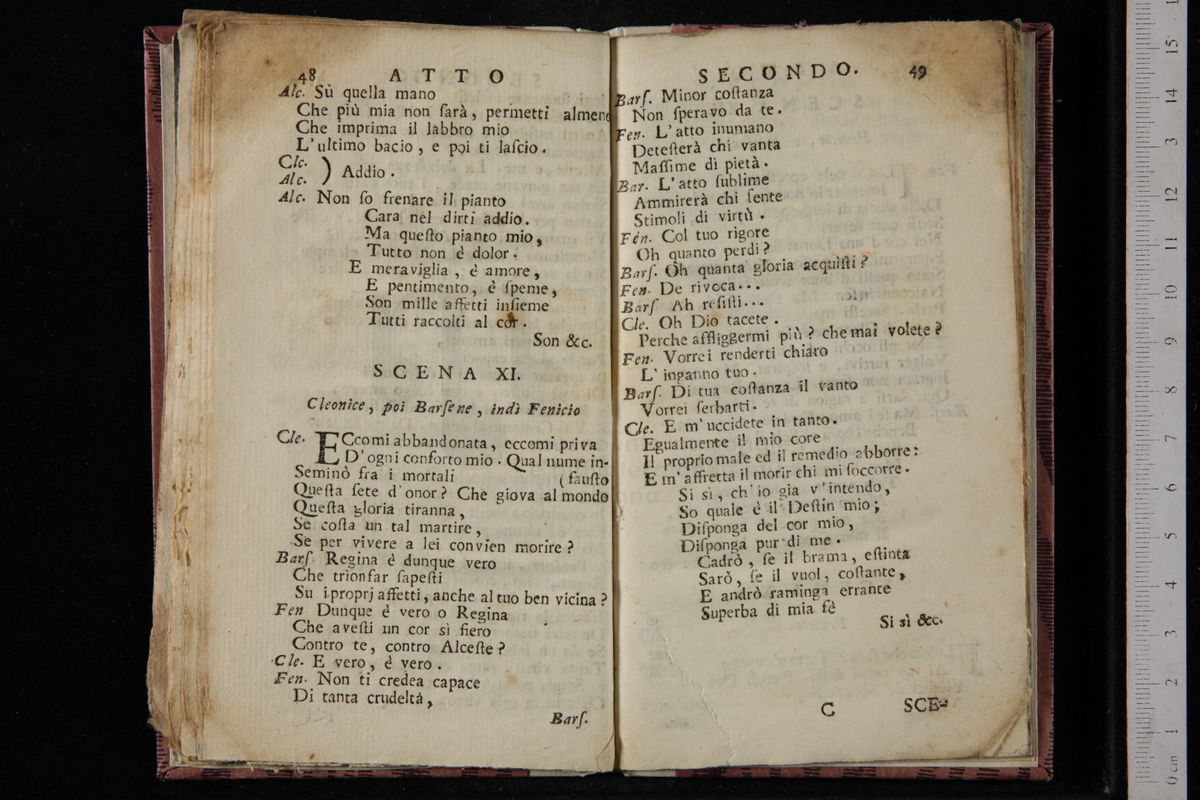 48 ATTO
Alc. Sù quella mano
Che più mia non ſarà, permetti almeno
Che imprima il labbro mio
L'ultimo bacio, e poi ti laſcio.
Cle.
Alc. ) Addio.
Alc. Non ſo frenare il pianto
Cara nel dirti addio.
Ma queſto pianto mio,
Tutto non è dolor.
E meraviglia, è amore,
E pentimento, è ſpeme,
Son mille affetti inſieme
Tutti raccolti al cor.
Son &c.
SCENA XI.
Cleonice, poi Barſene, indi Fenicio
Cle. ECcomi abbandonata, eccomi priva
D'ogni conforto mio. Qual nume in-
Seminò fra i mortali (fauſto
Queſta ſete d'onor? Che giova al mondo
Queſta gloria tiranna,
Se coſta un tal martire,
Se per vivere a lei convien morire?
Barſ. Regina è dunque vero
Che trionfar ſapeſti
Su i proprj affetti, anche al tuo ben vicina?
Fen Dunque è vero o Regina
Che aveſti un cor sì fiero
Contro te, contro Alceſte?
Cle. E vero, è vero.
Fen. Non ti credea capace
Di tanta crudeltà,
Barſ.
SECONDO. 49
Barſ. Minor coſtanza
Non ſperavo da te.
Fen. L'atto inumano
Deteſterà chi vanta
Maſſime di pietà.
Bar. L'atto ſublime
Ammirerà chi ſente
Stimoli di virtù.
Fen. Col tuo rigore
Oh quanto perdi?
Barſ. Oh quanta gloria acquiſti?
Fen. De rivoca...
Barſ Ah reſiſti...
Cle. Oh Dio tacete.
Perche affliggermi più? che mai volete?
Fen. Vorrei renderti chiaro
L'inganno tuo.
Barſ. Di tua coſtanza il vanto
Vorrei ſerbarti.
Cle. E m'uccidete in tanto.
Egualmente il mio core
Il proprio male ed il remedio abborre:
E m'affretta il morir chi mi ſoccorre.
Si sì, ch'io gia v'intendo,
So quale è il Deſtin mio;
Diſponga del cor mio,
Diſponga pur di me.
Cadrò, ſe il brama, eſtinta
Sarò, ſe il vuol, coſtante,
E andrò raminga errante
Superba di mia fè
Si sì &c.
C SCE-